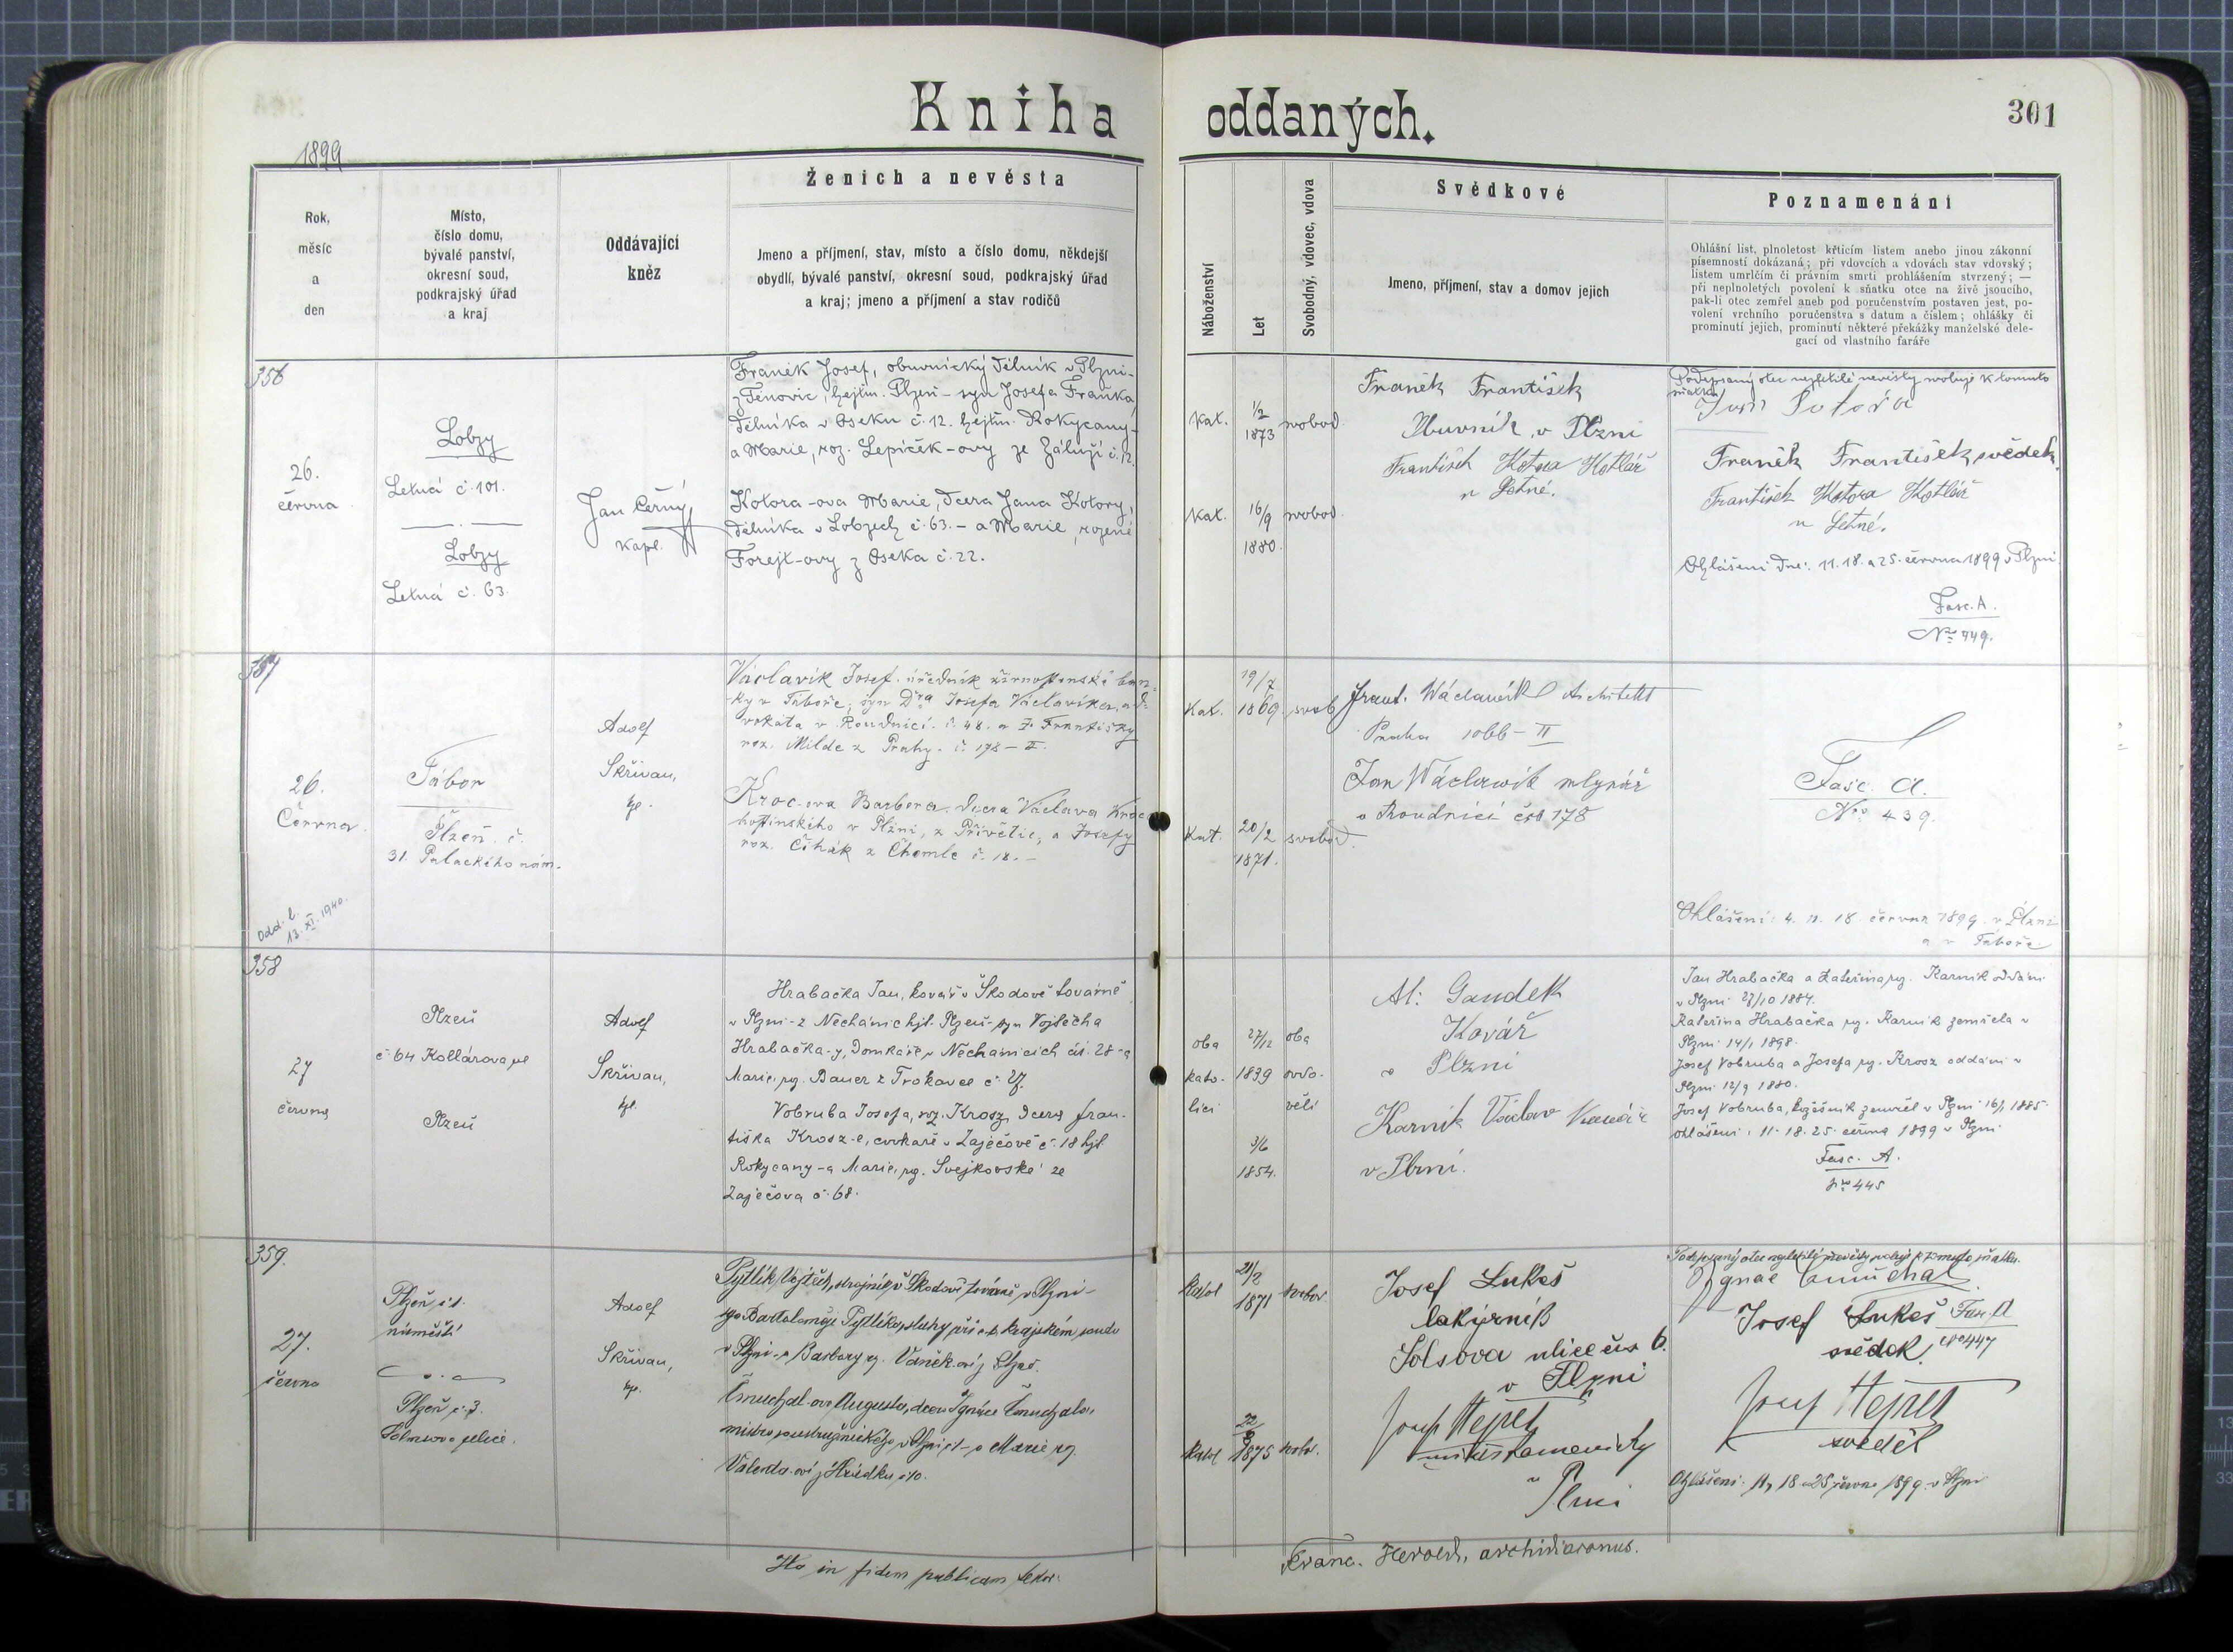 Kniha oddaných.
301
1899
Rok,
měsíc
a
den
Místo,
číslo domu,
bývalé panství,
okresní soud,
podkrajský úřad
a kraj
Oddávající
kněz
Ženich a nevěsta
Jmeno a příjmení, stav, místo a číslo domu, někdejší
obydlí, bývalé panství, okresní soud, podkrajský úřad
a kraj; jmeno a příjmení a stav rodičů
Náboženství
Let
Svobodný, vdovec, vdova
Svědkové
Jmeno, příjmení, stav a domov jejich
Poznamenání
Ohlášní list, plnoletost křticím listem anebo jinou zákonní
písemností dokázaná; při vdovcích a vdovách stav vdovský;
listem umrlčím či právním smrti prohlášením stvrzený; —
při neplnoletých povolení k sňatku otce na živě jsoucího,
pak-li otec zemřel aneb pod poručenstvím postaven jest, po-
volení vrchního poručenstva s datum a číslem; ohlášky či
prominutí jejich, prominutí některé překážky manželské dele-
gací od vlastního faráře
356
26.
června
Lobzy
Letná č. 101.
Lobzy
Letná č. 63.
Jan Černý
kapl.
Franěk Josef, obuvnický dělník v Plzni-
z Těnovic, hejtm. Plzeň - syn Josefa Fraňka,
dělníka v Oseku č. 12. hejtm. Rokycany-
a Marie, roz. Lepíček-ovy ze Záluží č. 12.
Kotora-ova Marie, dcera Jana Kotory,
dělníka v Lobzech č. 63. - a Marie, rozené
Forejt-ovy z Oseka č. 22.
Kat.
1/2
1873
svobod.
Kat.
16/9
1880.
svobod.
Franěk František
Obuvník v Plzni
František Kotora Kotlář
n Letné.
Podepsaný otec nezletilé nevěsty svoluje k tomuto
sňatku
Jan
Franěk František svědek.
František Kotora Kotlář
n Letné.
Ohlášeni dne: 11. 18. a 25. června 1899 v Plzni.
Fasc. A.
No 449.
357
26.
Června.
Tábor
Plzeň č.
31. Palackého nám.
Adolf
Skřivan,
kp.
Václavík Josef, úředník živnostenské ban-
ky v Táboře, syn Dra Josefa Václavíka, ad-
vokáta v Roudnici č. 48. a Františky
roz. Milde z Prahy č. 178 - II.
Kroc-ova Barbora, dcera Václava Kroc
hostinského v Plzni, z Přívětic, a Josefy
roz. Čihák z Chomle č. 18. -
Kat.
19/7
1869.
svob
Kat.
20/2
1871.
svobod.
Frant. Wáclawík Architekt
Praha 1066 - II
Jan Wáclawík mlynář
v Roudnici čís 178
Fasc. A.
No 439.
Ohlášení: 4. 11. 18. června 1899 v Plzni
a v Táboře.
Odd. l.
13. XI. 1940.
358
27
června
Plzeň
č 64 Kollárova ul
Plzeň
Adolf
Skřivan,
kp.
Hrabačka Jan, kovář v Škodově továrně
v Plzni - z Nechanic hjt. Plzeň - syn Vojtěcha
Hrabačka-y, Domkáře v Nechanicích čís. 28 - a
Marie, roz. Bauer z Trokavce č. 27.
Vobruba Josefa, roz. Krosz, dcera fran-
tiška Krosz-e, cvokaře v Zaječově č. 18 hjt
Rokycany - a Marie, roz. Svejkovské ze
Zaječova č. 68.
oba
kato-
líci
27/12
1839
3/6
1854.
oba
ovdo-
věli
Al: Gaudek
Kovář
v Plzni
Karnik Václav Kovář
v Plzni.
Jan Hrabačka a Kateřina, roz. Karnik oddáni
v Plzni 27/10 1884.
Kateřina Hrabačka roz. Karnik zemřela v
Plzni 14/1 1898.
Josef Vobruba a Josefa roz. Krosz oddáni v
Plzni 12/9 1880.
Josef Vobruba, kožešník zemřel v Plzni 16/1 1885.
Ohlášeni: 11. 18. 25. června 1899 v Plzni
Fasc. A.
No 445
359.
27.
června
Plzeň č 1.
náměstí
Plzeň č. 3.
Solnsova ulice.
Adolf
Skřivan,
kp.
Pytlík Vojtěch, strojník v Škodově továrně v Plzni -
syn Bartoloměje Pytlíka, sluhy při c. k. krajském soudu
v Plzni - a Barbory roz. Vaněk-ovi z Plzně.
Čmuchal-ova Augusta, dcera Ignáce Čmuchala,
mistra soustružnického v Plzni č 1 - a Marie roz.
Valenta-ovi z Hrádku č 10.
katol
21/3
1871
svobod
katol
22
1875
svobod.
Josef Lukeš
lakýrník
Solsova ulice čís 6.
v Plzni
Josef Hejret
mistr kamenický
v Plzni
Podepsaný otec nezletilé nevěsty svoluje k tomuto sňatku.
Ignac Čmuchal
Josef Lukeš
svědek
Fasc. A
No 447
Josef Hejret
svěděk
Ohlášeni: 11, 18 a 25 června 1899. v Plzni
Ita in fidem publicam testor:
Franc. Herold, archidiaconus.